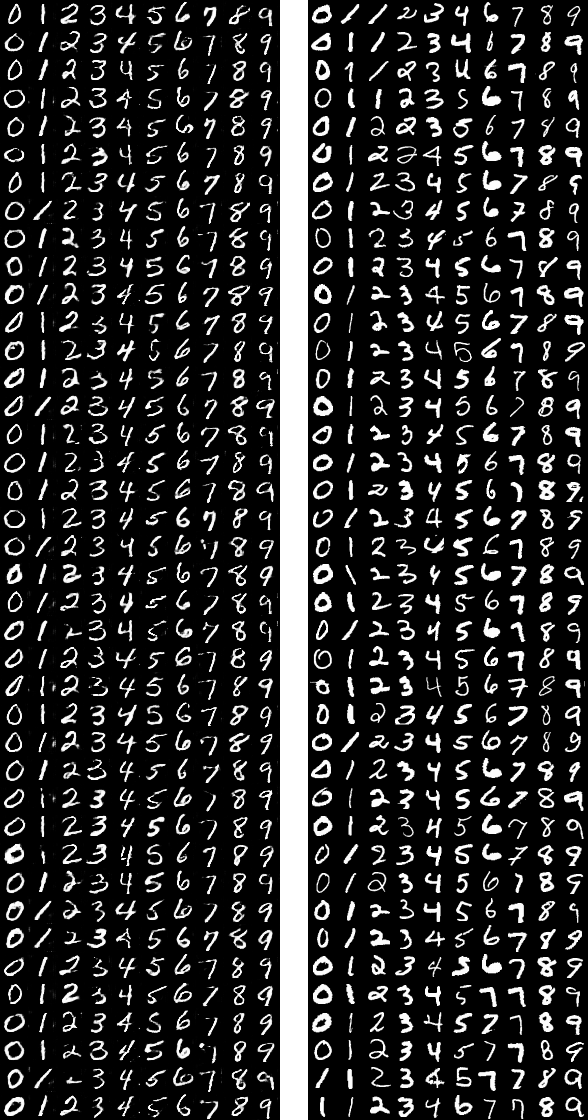 0 1 2 3 4 5 6 7 8 9 0 1 1 2 3 4 6 7 8 9
0 1 2 3 4 5 6 7 8 9 0 1 1 2 3 4 6 7 8 9
0 1 2 3 4 5 6 7 8 9 0 1 1 2 3 4 6 7 8 9
0 1 2 3 4 5 6 7 8 9 0 1 1 2 3 5 6 7 8 9
0 1 2 3 4 5 6 7 8 9 0 1 2 2 3 5 6 7 8 9
0 1 2 3 4 5 6 7 8 9 0 1 2 2 4 5 6 7 8 9
0 1 2 3 4 5 6 7 8 9 0 1 2 3 4 5 6 7 8 9
0 1 2 3 4 5 6 7 8 9 0 1 2 3 4 5 6 7 8 9
0 1 2 3 4 5 6 7 8 9 0 1 2 3 4 5 6 7 8 9
0 1 2 3 4 5 6 7 8 9 0 1 2 3 4 5 6 7 8 9
0 1 2 3 4 5 6 7 8 9 0 1 2 3 4 5 6 7 8 9
0 1 2 3 4 5 6 7 8 9 0 1 2 3 4 5 6 7 8 9
0 1 2 3 4 5 6 7 8 9 0 1 2 3 4 5 6 7 8 9
0 1 2 3 4 5 6 7 8 9 0 1 2 3 4 5 6 7 8 9
0 1 2 3 4 5 6 7 8 9 0 1 2 3 4 5 6 7 8 9
0 1 2 3 4 5 6 7 8 9 0 1 2 3 4 5 6 7 8 9
0 1 2 3 4 5 6 7 8 9 0 1 2 3 4 5 6 7 8 9
0 1 2 3 4 5 6 7 8 9 0 1 2 3 4 5 6 7 8 9
0 1 2 3 4 5 6 7 8 9 0 1 2 3 4 5 6 7 8 9
0 1 2 3 4 5 6 7 8 9 0 1 2 3 4 5 6 7 8 9
0 1 2 3 4 5 6 7 8 9 0 1 2 3 4 5 6 7 8 9
0 1 2 3 4 5 6 7 8 9 0 1 2 3 4 5 6 7 8 9
0 1 2 3 4 5 6 7 8 9 0 1 2 3 4 5 6 7 8 9
0 1 2 3 4 5 6 7 8 9 0 1 2 3 4 5 6 7 8 9
0 1 2 3 4 5 6 7 8 9 0 1 2 3 4 5 6 7 8 9
0 1 2 3 4 5 6 7 8 9 0 1 2 3 4 5 6 7 8 9
0 1 2 3 4 5 6 7 8 9 0 1 2 3 4 5 6 7 8 9
0 1 2 3 4 5 6 7 8 9 0 1 2 3 4 5 6 7 8 9
0 1 2 3 4 5 6 7 8 9 0 1 2 3 4 5 6 7 8 9
0 1 2 3 4 5 6 7 8 9 0 1 2 3 4 5 6 7 8 9
0 1 2 3 4 5 6 7 8 9 0 1 2 3 4 5 6 7 8 9
0 1 2 3 4 5 6 7 8 9 0 1 2 3 4 5 6 7 8 9
0 1 2 3 4 5 6 7 8 9 0 1 2 3 4 5 6 7 8 9
0 1 2 3 4 5 6 7 8 9 0 1 2 3 4 5 6 7 8 9
0 1 2 3 4 5 6 7 8 9 0 1 2 3 4 5 6 7 8 9
0 1 2 3 4 5 6 7 8 9 0 1 2 3 4 5 7 7 8 9
0 1 2 3 4 5 6 7 8 9 0 1 2 3 4 5 7 7 8 9
0 1 2 3 4 5 6 7 8 9 0 1 2 3 4 5 7 7 8 9
0 1 3 4 5 6 7 8 9 1 1 2 3 4 5 7 7 8 9
0 1 2 3 4 5 6 7 8 9 1 1 2 3 4 6 7 7 8 9